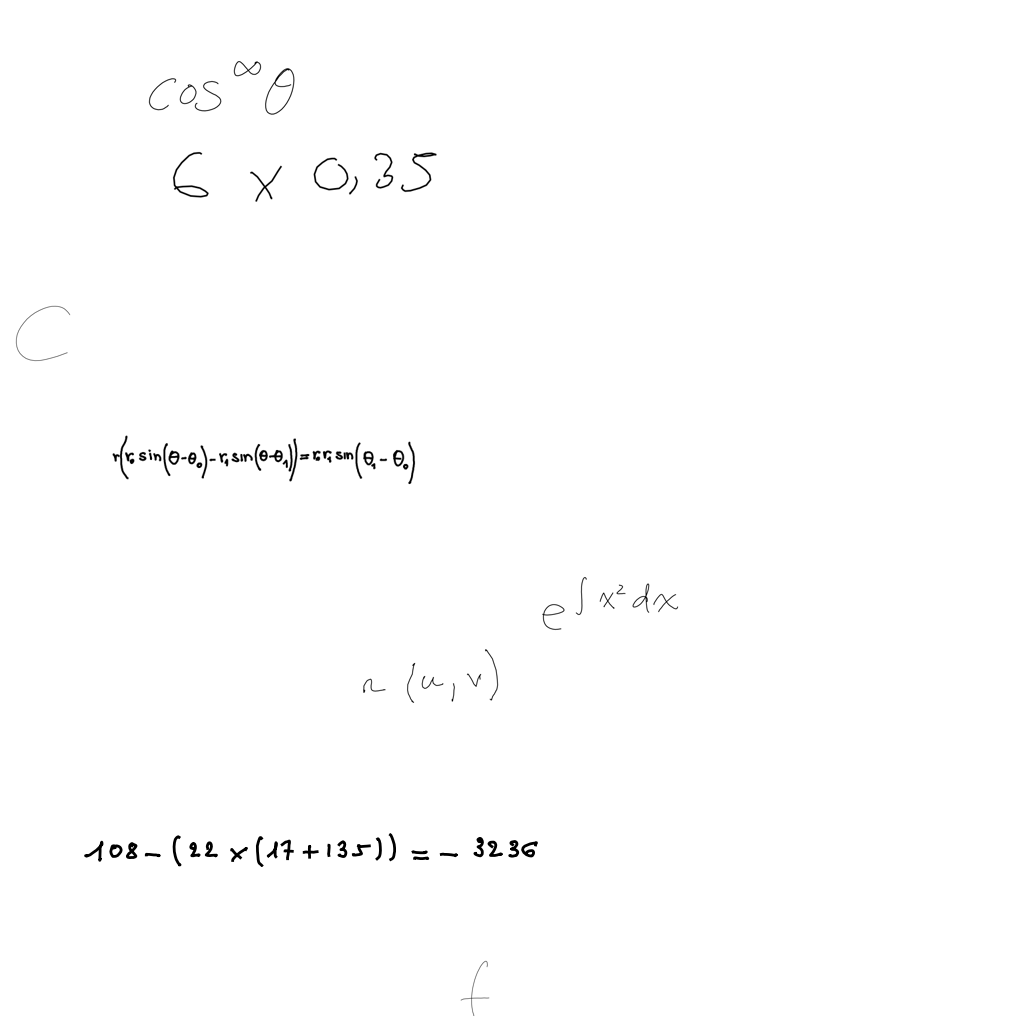 cos^∞ θ
6 × 0,35
C
r(r₀ sin(θ-θ₀)-r₁ sin(θ-θ₁))=r₀r₁ sin(θ₁-θ₀)
e^{∫x²dx}
r(u,v)
108-(22×(17+135))=-3236
f